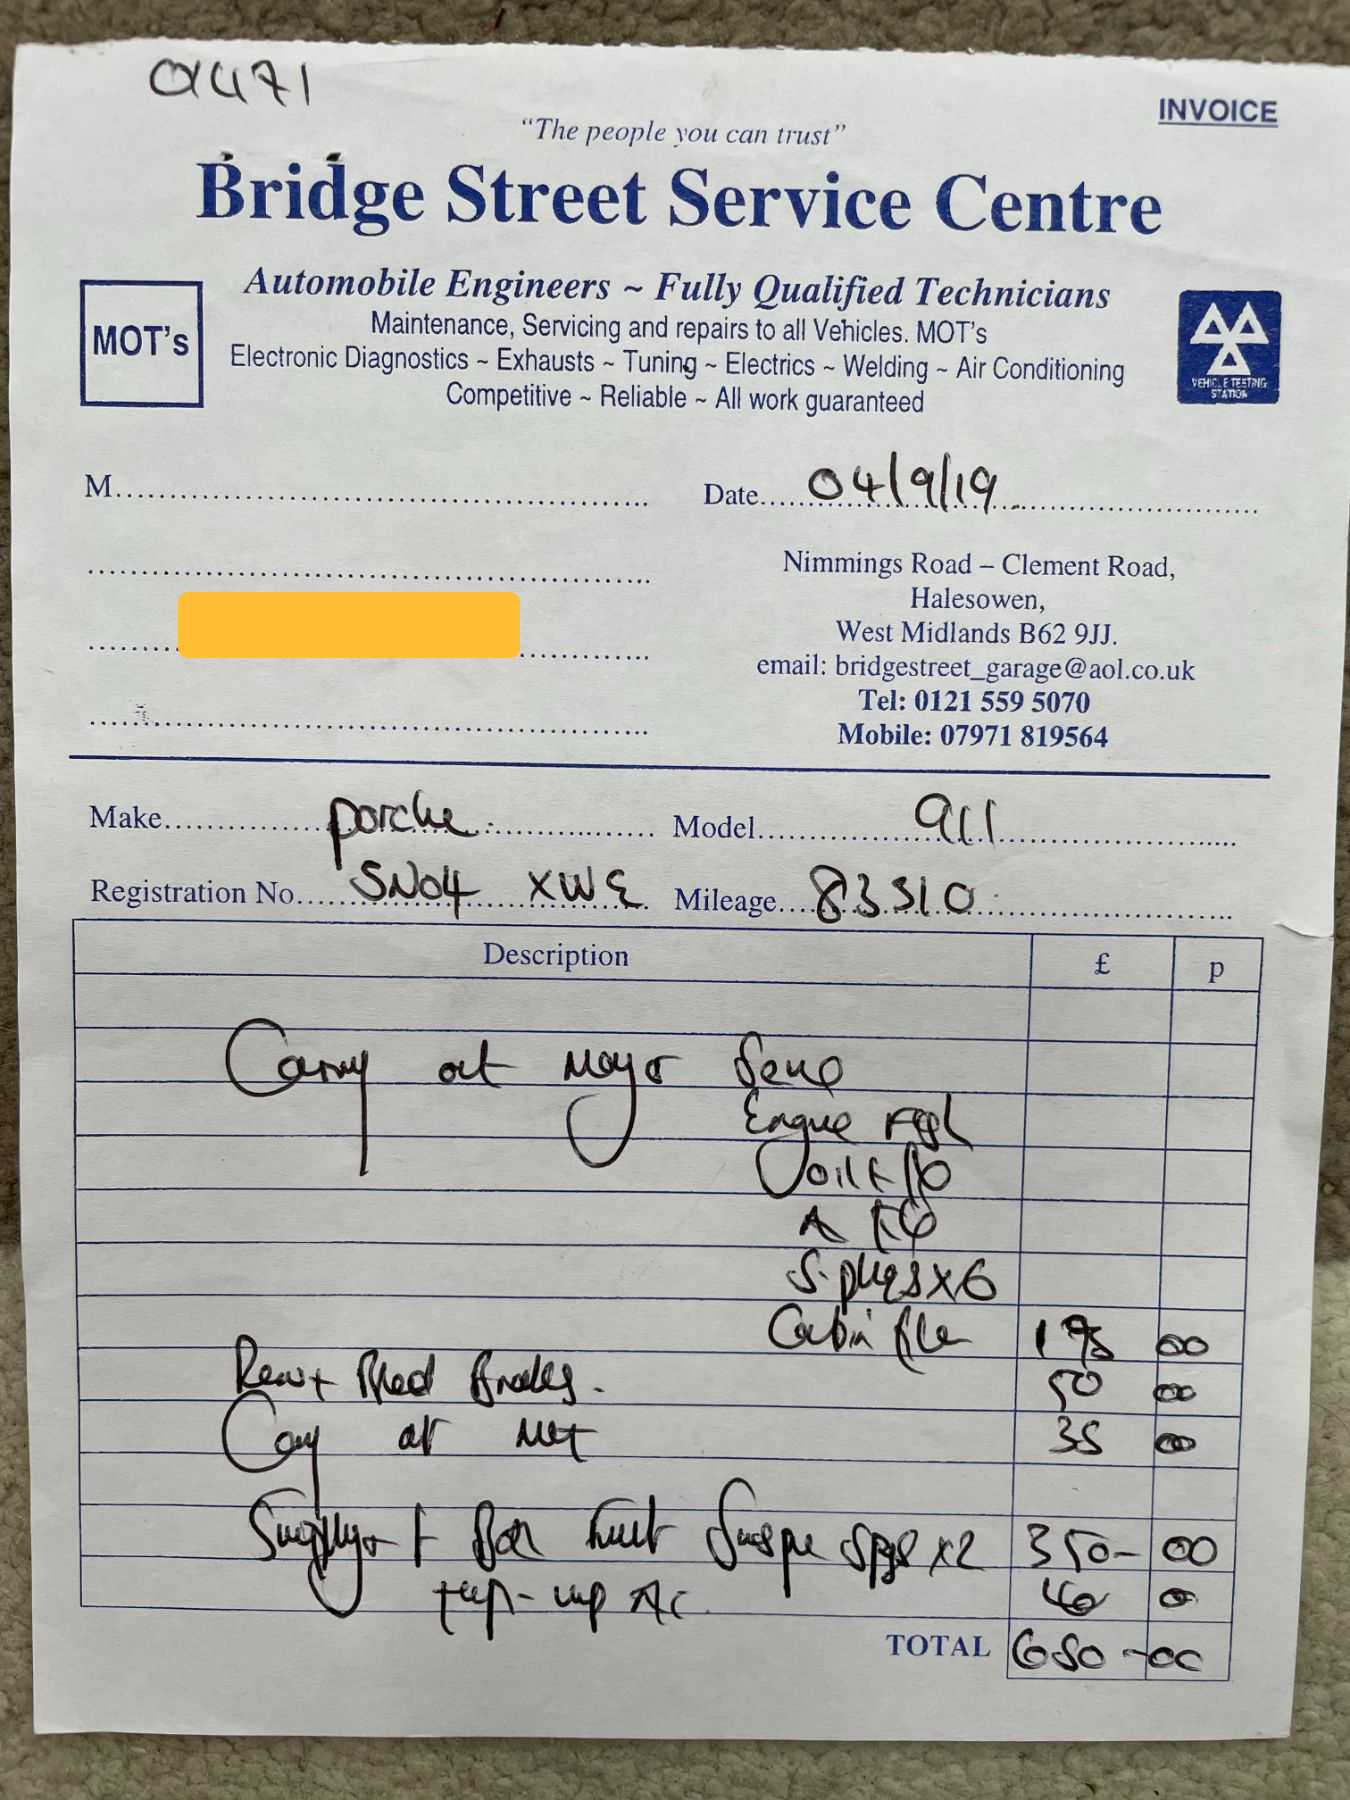 01471
INVOICE
“The people you can trust”
Bridge Street Service Centre
MOT's
Automobile Engineers ~ Fully Qualified Technicians
Maintenance, Servicing and repairs to all Vehicles. MOT's
Electronic Diagnostics ~ Exhausts ~ Tuning ~ Electrics ~ Welding ~ Air Conditioning
Competitive ~ Reliable ~ All work guaranteed
VEHICLE TESTING
STATION
M
Date 04/9/19
Nimmings Road – Clement Road,
Halesowen,
West Midlands B62 9JJ.
email: bridgestreet_garage@aol.co.uk
Tel: 0121 559 5070
Mobile: 07971 819564
Make porche Model 911
Registration No. SN04 XWE Mileage 83310
Description £ p
Carry out Major
Engine
oil +
A
S. plugs x 6
Cabin 195 00
50 00
35 00
x2 350- 00
top-up Ac 40 0
TOTAL 680-00